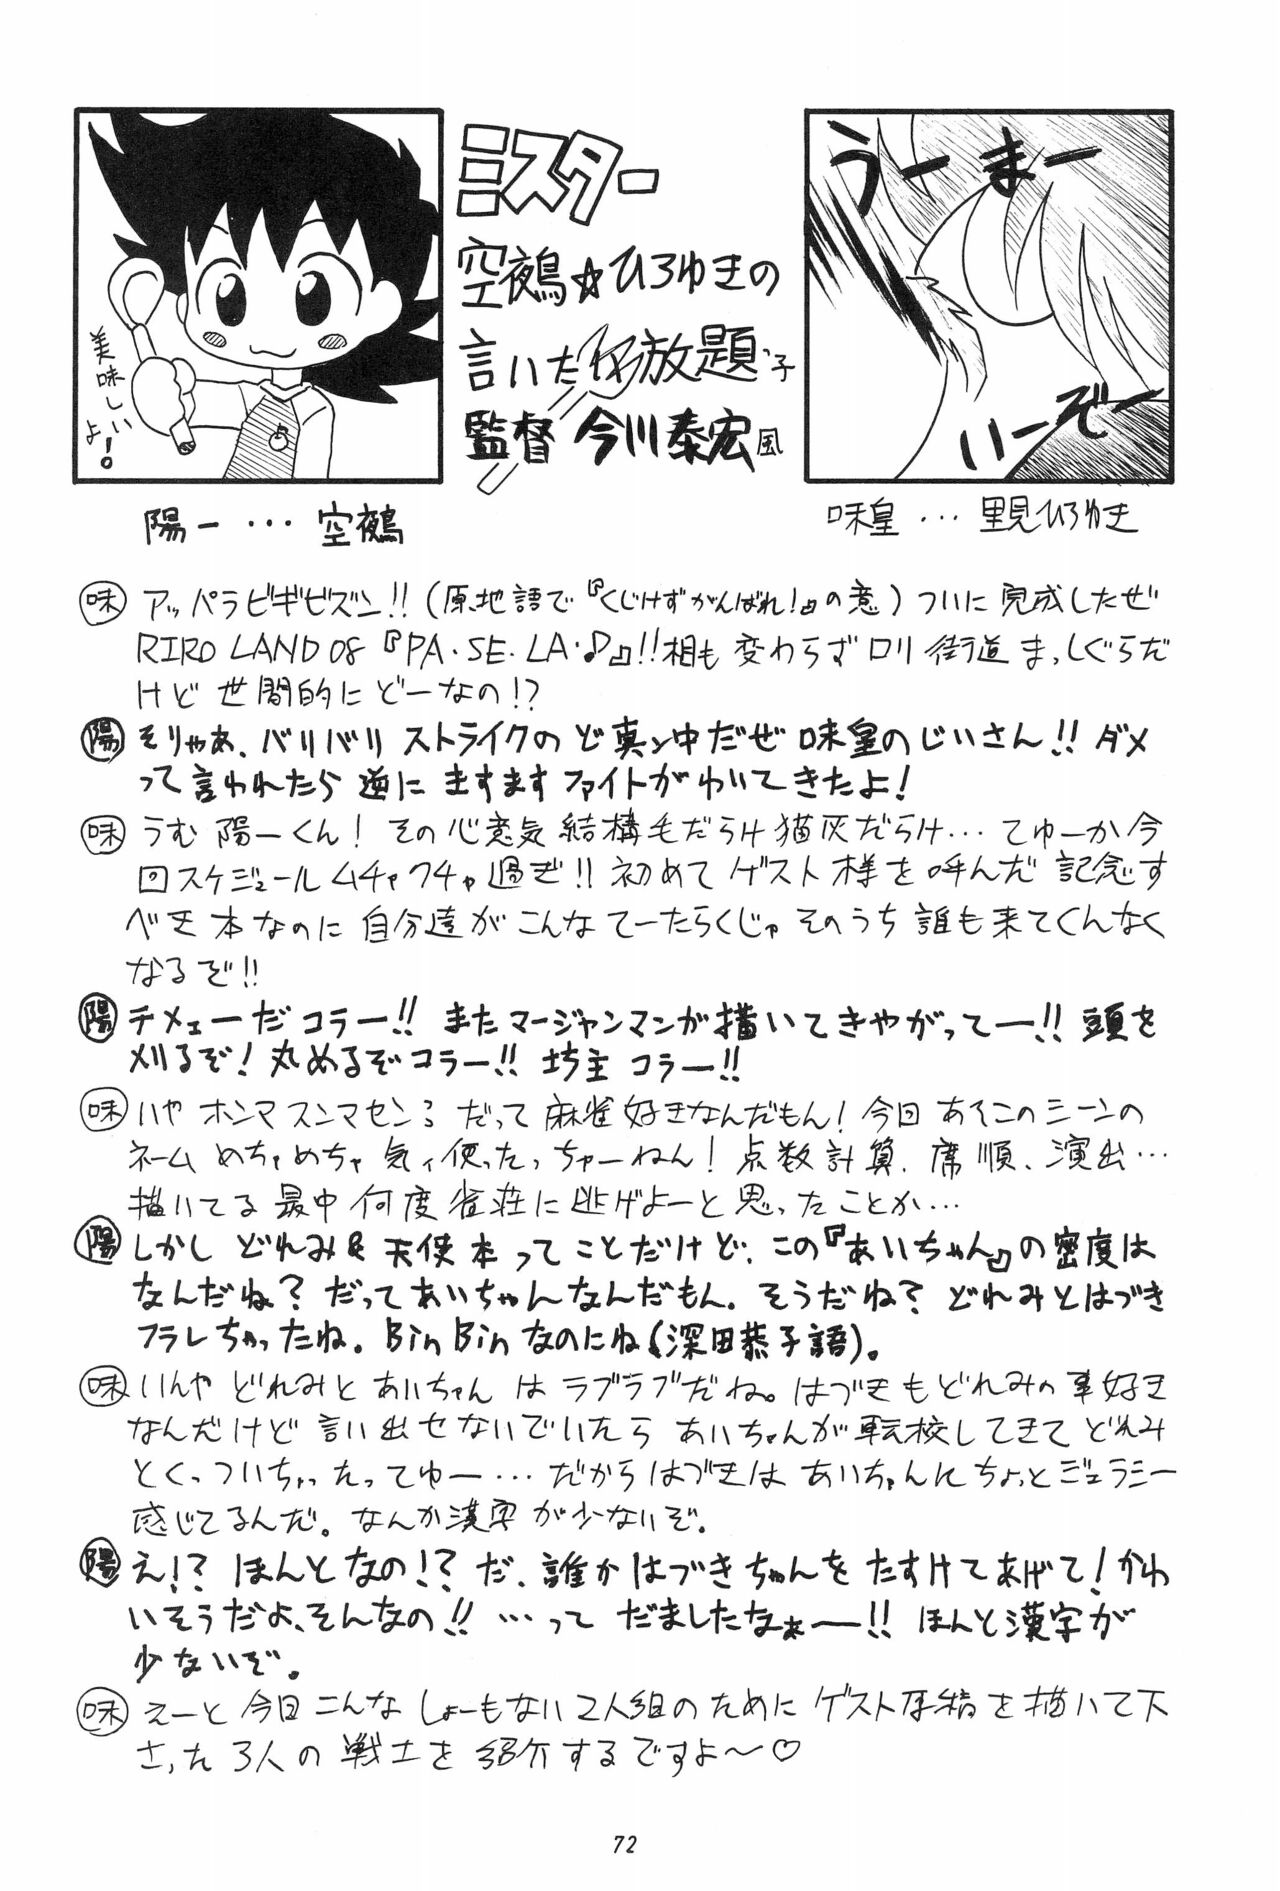 ミスター
空鵺☆ひろゆきの
言いたい放題
監督 今川泰宏風
美味しいよ!
うーまー
いーぞー
陽一・・・空鵺
味皇・・・里見ひろゆき
味 アッパラビギビズン!!(原地語で『くじけずがんばれ!』の意)ついに完成したぜ
RIRO LAND 08『PA・SE・LA・♪』!!相も変わらずロリ街道まっしぐらだ
けど世間的にどーなの!?
陽 そりゃあ、バリバリストライクのど真ン中だぜ味皇のじいさん!!ダメ
って言われたら逆にますますファイトがわいてきたよ!
味 うむ陽一くん!その心意気結構毛だらけ猫灰だらけ…てゆーか今
回スケジュールムチャクチャ過ぎ!!初めてゲスト様を呼んだ記念す
べき本なのに自分達がこんなてーたらくじゃそのうち誰も来てくんなく
なるぞ!!
陽 チメェーだコラー!!またマージャンマンガ描いてきやがってー!!頭を
刈るぞ!丸めるぞコラー!!坊主コラー!!
味 いやホンマスンマセンろ だって麻雀好きなんだもん!今回あそこのシーンの
ネームめちゃめちゃ気ィ使ったっちゅーねん!点数計算、席順、演出…
描いてる最中何度雀荘に逃げよーと思ったことか…
陽 しかしどれみ&天使本ってことだけど、この『あいちゃん』の密度は
なんだね?だってあいちゃんなんだもん。そうだね?どれみとはづき
フラレちゃったね。Bin Binなのにね(深田恭子語)。
味 いんやどれみとあいちゃんはラブラブだね。はづきもどれみの事好き
なんだけど言い出せないでいたらあいちゃんが転校してきてどれみ
とくっついちゃったってゆー…だからはづきはあいちゃんにちょっとジェラシー
感じてるんだ。なんか漢字が少ないぞ。
陽 え!?ほんとなの!?だ、誰かはづきちゃんをたすけてあげて!かわ
いそうだよ、そんなの!!…ってだましたなぁー!!ほんと漢字が
少ないぞ。
味 えーと今回こんなしょーもない2人組のためにゲスト原稿を描いて下
さった3人の戦士を紹介するですよ〜♡
72